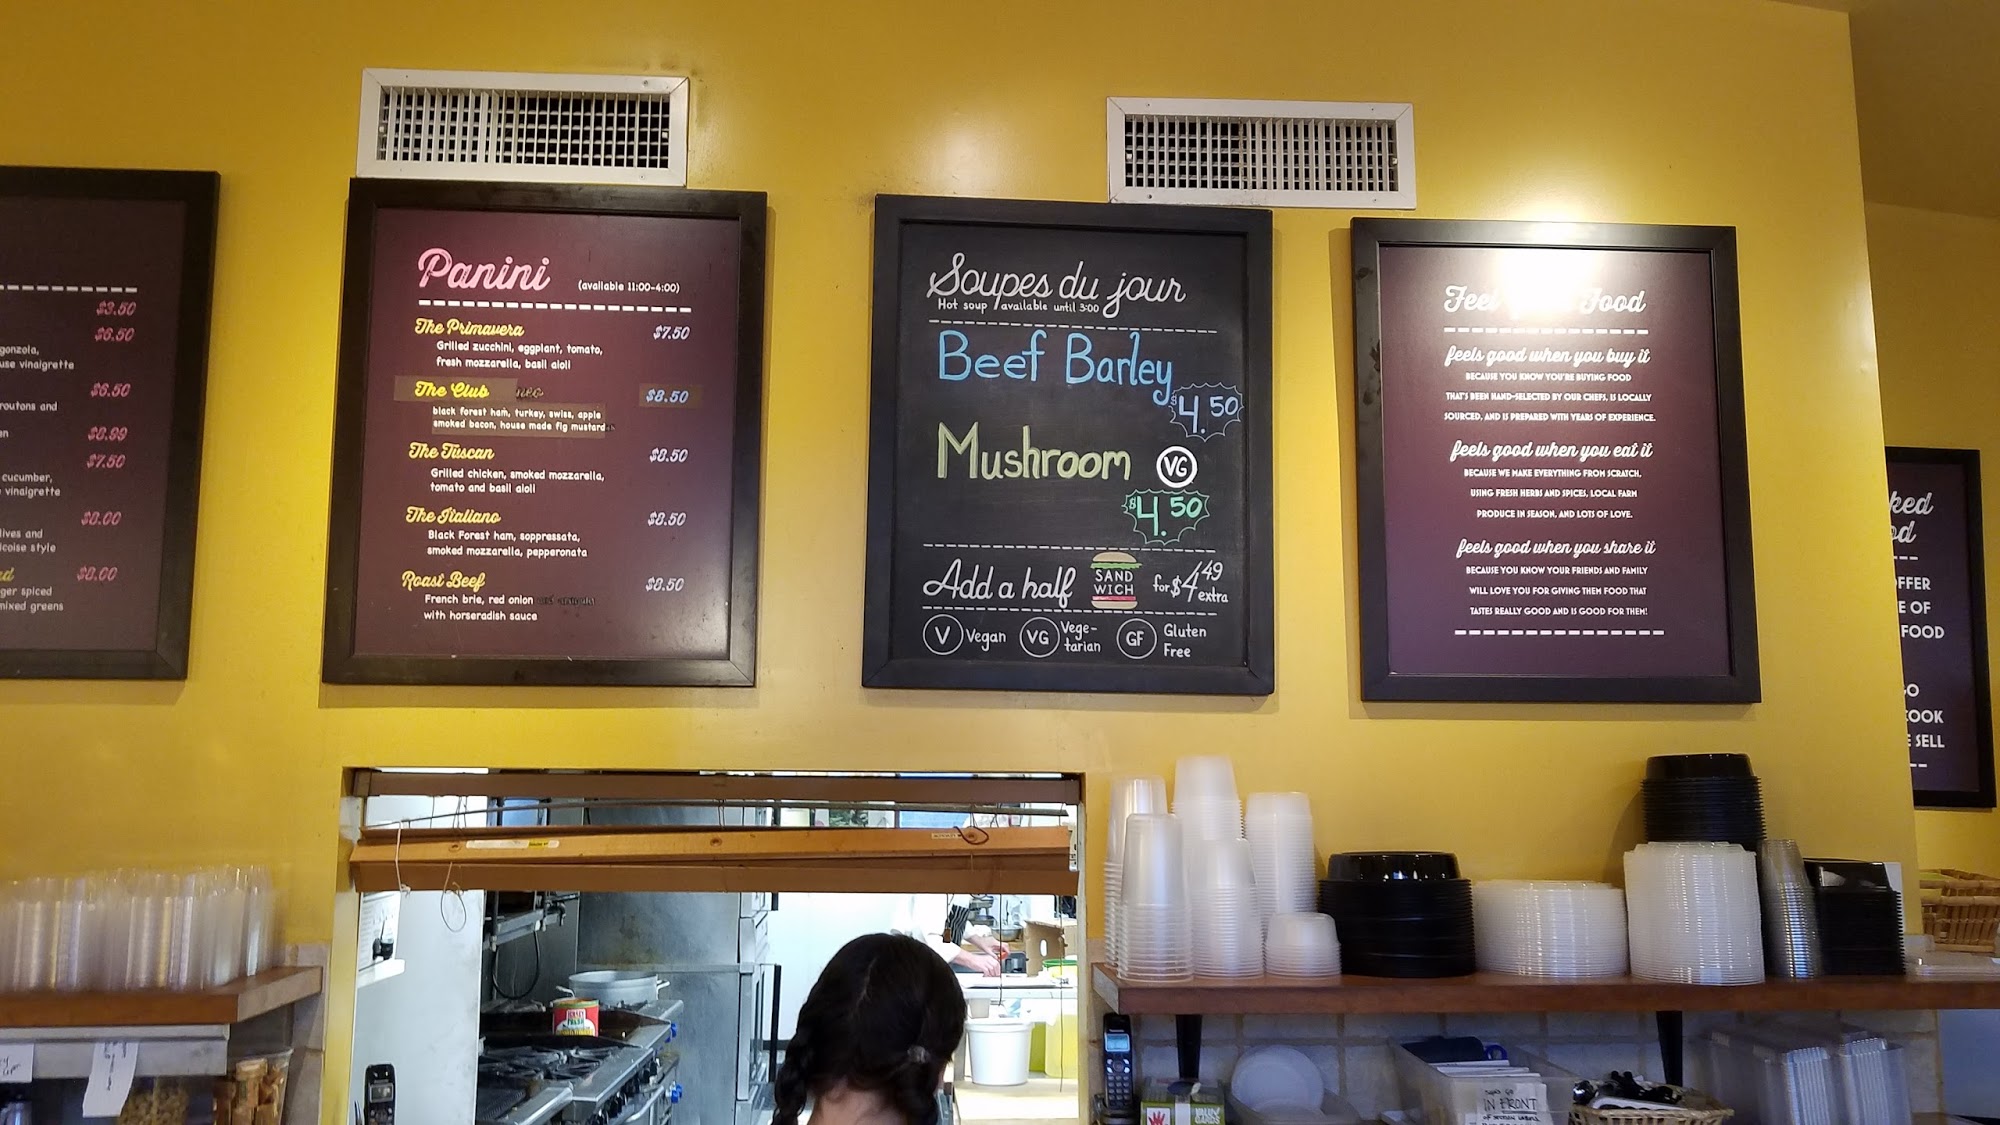 $3.50
$6.50
gonzola,
use vinaigrette
$6.50
routons and
$8.99
en
$7.50
cucumber,
vinaigrette
$8.00
lives and
icoise style
$8.00
ger spiced
mixed greens
Panini (available 11:00-4:00)
The Primavera $7.50
Grilled zucchini, eggplant, tomato,
fresh mozzarella, basil aioli
The Club $8.50
black forest ham, turkey, swiss, apple
smoked bacon, house made fig mustard
The Tuscan $8.50
Grilled chicken, smoked mozzarella,
tomato and basil aioli
The Italiano $8.50
Black Forest ham, soppressata,
smoked mozzarella, pepperonata
Roast Beef $8.50
French brie, red onion
with horseradish sauce
Soupes du jour
Hot soup available until 3:00
Beef Barley
$4.50
Mushroom VG
$4.50
Add a half SANDWICH for $4.49 extra
V Vegan VG Vege-tarian GF Gluten Free
Feel Food
feels good when you buy it
BECAUSE YOU KNOW YOU'RE BUYING FOOD
THAT'S BEEN HAND-SELECTED BY OUR CHEFS, IS LOCALLY
SOURCED, AND IS PREPARED WITH YEARS OF EXPERIENCE.
feels good when you eat it
BECAUSE WE MAKE EVERYTHING FROM SCRATCH,
USING FRESH HERBS AND SPICES, LOCAL FARM
PRODUCE IN SEASON, AND LOTS OF LOVE.
feels good when you share it
BECAUSE YOU KNOW YOUR FRIENDS AND FAMILY
WILL LOVE YOU FOR GIVING THEM FOOD THAT
TASTES REALLY GOOD AND IS GOOD FOR THEM!
ked
od
OFFER
E OF
FOOD
GO
COOK
E SELL
IN FRONT